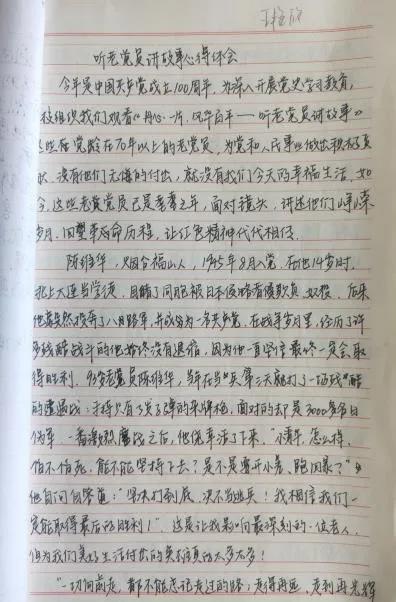 听老党员讲故事心得体会
今年是中国共产党成立100周年，为深入开展党史学习教育，
校组织我们观看《丹心一片，风华百年——听老党员讲故事》
这些在党龄在70年以上的老党员，为党和人民事业做出积极贡
献，没有他们无悔的付出，就没有我们今天的幸福生活。如
今，这些老党员已是耄耋之年，面对镜头，讲述他们峥嵘
岁月，回望革命历程，让红色精神代代相传。
陈维华，烟台福山人，1945年8月入党，在他14岁时，
北上大连当学徒，目睹了同胞被日本侵略者欺负、奴役，后来
他毅然投奔了八路军，并成为一名共产党，在战争岁月里，经历了许
多残酷战斗的他始终没有退缩，因为他一直坚信最终一定会取
得胜利。93岁老党员陈维华，当年在当兵第三天就打了一场残酷
的遭遇战：手持只有3发子弹的来牌枪，面对的却是3000多名日
伪军，一番激烈鏖战之后，他侥幸活了下来。"小青年，怎么样，
怕不怕死，能不能坚持下去？是不是要开小差、跑回家？"
他自问自答道："坚决打到底，决不当逃兵！我相信我们一
定能取得最后的胜利！"这是让我影响最深刻的一位老人，
"一切向前走，都不能忘记走过的路；走得再远、走到再光辉